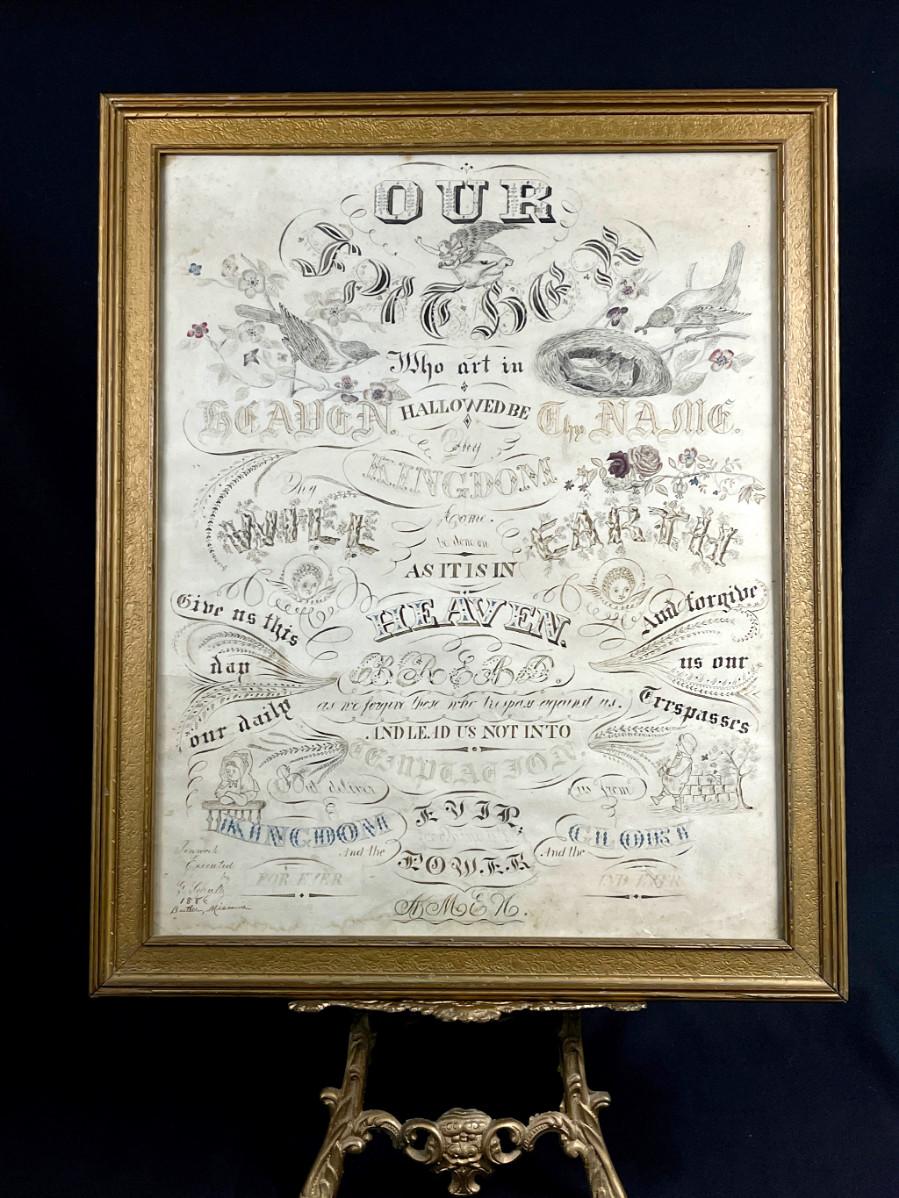 OUR
Father
Who art in
HEAVEN. HALLOWED BE Thy NAME.
Thy
KINGDOM
Thy
Come.
WILL be done on EARTH
AS IT IS IN
HEAVEN.
Give us this
day
our daily
BREAD.
And forgive
us our
Trespasses
as we forgive those who trespass against us.
AND LEAD US NOT INTO
TEMPTATION.
But deliver us from
EVIL
KINGDOM GLORY
And the And the
POWER
FOR EVER AND EVER
AMEN.
Penwork
Executed
by
1886
Butler, Missouri